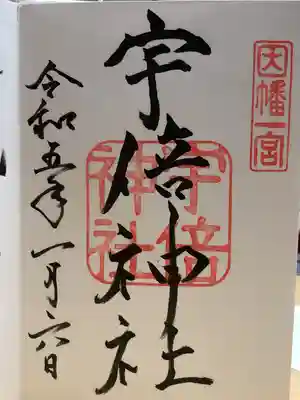 因幡一宮
宇倍神社
宇倍神社
令和五年一月六日